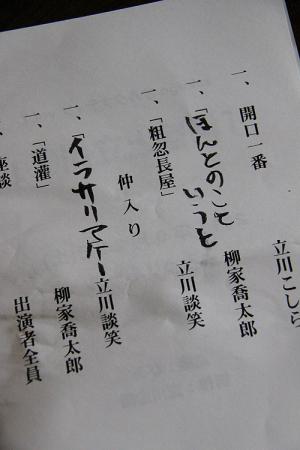 一、開口一番 立川こしら
一、「ほんとのこと
いうと 柳家喬太郎
一、「粗忽長屋」 立川談笑
仲入り
一、「イラサリマケー 立川談笑
一、「道灌」 柳家喬太郎
、座談 出演者全員